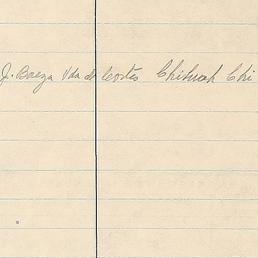 J. Baeza Vda de Cortés Chihuah Chi